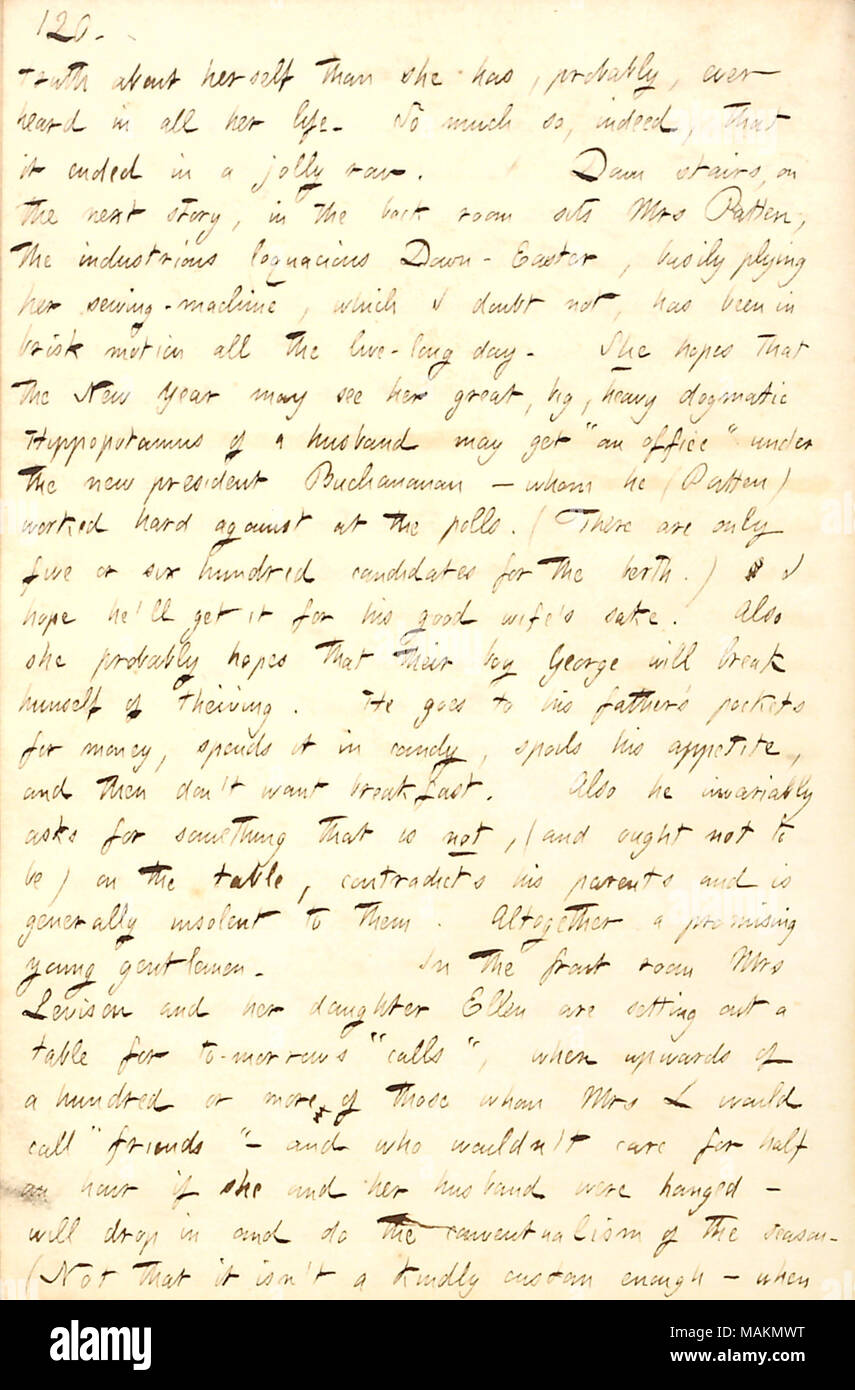 120.
truth about herself than she has, probably, ever
heard in all her life. So much so, indeed, that
it ended in a jolly row. Down stairs, on
the next story, in the back room sits Mrs Patten,
the industrious loquacious Down-Easter, busily plying
her sewing-machine, which I doubt not, has been in
brisk motion all the live-long day. She hopes that
the New Year may see her great, big, heavy dogmatic
Hippopotamus of a husband may get "an office" under
the new president Buchananan — whom he (Patten)
worked hard against at the polls. (There are only
five or six hundred candidates for the berth.) I
hope he'll get it for his good wife's sake. Also
she probably hopes that their boy George will break
himself of theiving. He goes to his father's pockets
for money, spends it in candy, spoils his appetite,
and then don't want breakfast. Also he invariably
asks for something that is not, (and ought not to
be) on the table, contradicts his parents and is
generally insolent to them. Altogether a promising
young gentleman. In the front room Mrs
Levison and her daughter Ellen are setting out a
table for to-morrow's "calls", when upwards of
a hundred or more of those whom Mrs L would
call "friends" — and who wouldn't care for half
an hour if she and her husband were hanged —
will drop in and do the conventualism of the season.
(Not that it isn't a kindly custom enough — when
alamy
Image ID: MAKMWT
www.alamy.com